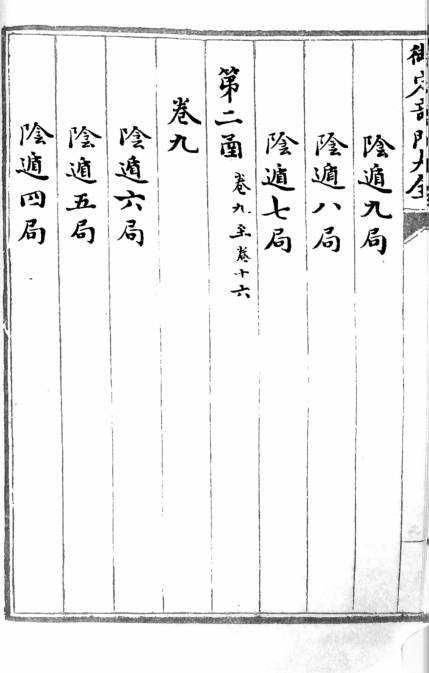 御定奇門大全
陰遁九局
陰遁八局
陰遁七局
第二函 卷九至卷十六
卷九
陰遁六局
陰遁五局
陰遁四局